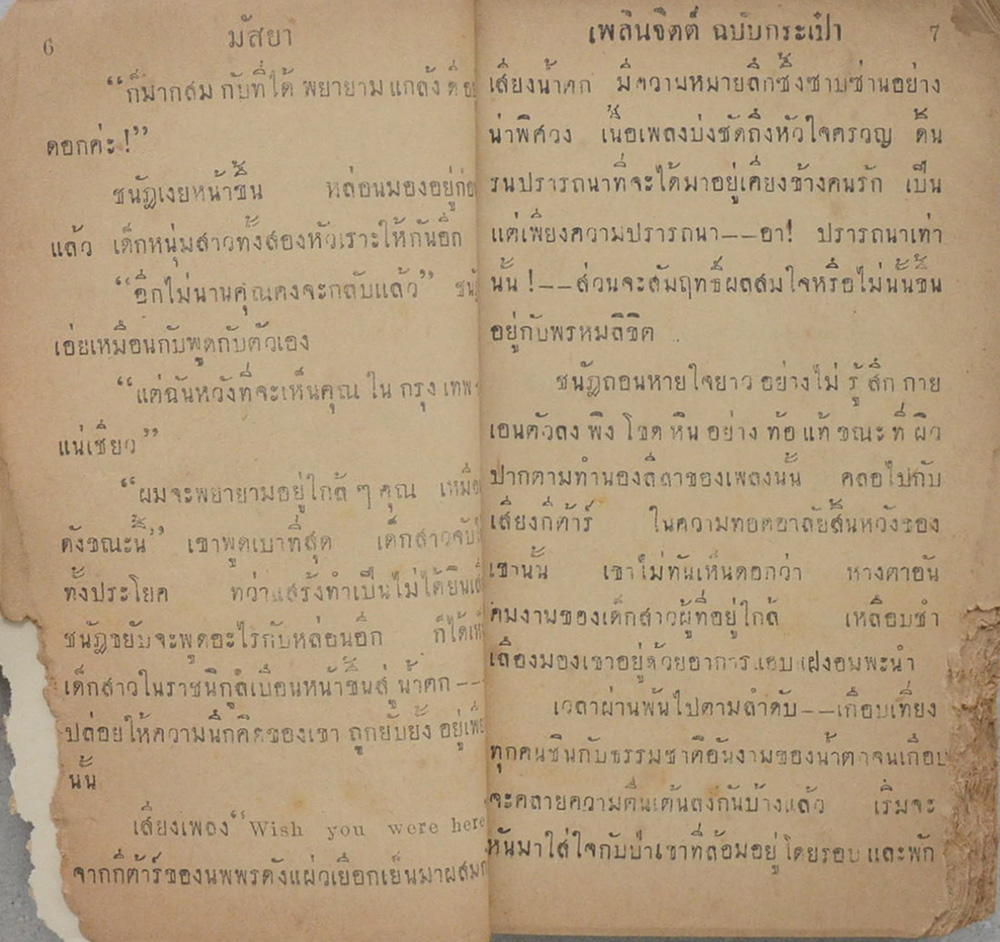 6 มัสยา
“ก็มากสม กับที่ได้ พยายาม แกล้ง
ดอกค่ะ !”
ชนัฎเงยหน้าขึ้น หล่อนมองอยู่ก่อน
แล้ว เด็กหนุ่มสาวทั้งสองหัวเราะให้กันอีก
“อีกไม่นานคุณคงจะกลับแล้ว”
เอ่ยเหมือนกับพูดกับตัวเอง
“แต่ฉันหวังที่จะเห็นคุณ ใน กรุง เทพ
แน่เชียว”
“ผมจะพยายามอยู่ใกล้ ๆ คุณ
ดังขณะนี้” เขาพูดเบาที่สุด เด็กสาวจับ
ทั้งประโยค ทว่าแสร้งทำเป็นไม่ได้ยิน
ชนัฎขยับจะพูดอะไรกับหล่อนอีก ก็ได้
เด็กสาวในราชนิกูลเบือนหน้าขึ้นสู่ น้ำตก --
ปล่อยให้ความนึกคิดของเขา ถูกยับยั้ง อยู่
นั้น
เสียงเพลง “Wish you were here
จากกีต้าร์ของนพพรดังแผ่วเยือกเย็นมาผสม
เพลินจิตต์ ฉบับกระเป๋า 7
เสียงน้ำตก มีความหมายลึกซึ้งซาบซ่านอย่าง
น่าพิศวง เนื้อเพลงบ่งชัดถึงหัวใจครวญ ดิ้น
รนปรารถนาที่จะได้มาอยู่เคียงข้างคนรัก เป็น
แต่เพียงความปรารถนา--อา! ปรารถนาเท่า
นั้น !--ส่วนจะสัมฤทธิ์ผลสมใจหรือไม่นั้นขึ้น
อยู่กับพรหมลิขิต
ชนัฎถอนหายใจยาว อย่างไม่ รู้ สึก กาย
เอนตัวลง พิง โขด หิน อย่าง ท้อ แท้ ขณะ ที่ ผิว
ปากตามทำนองลีลาของเพลงนั้น คลอไปกับ
เสียงกีต้าร์ ในความทอดอาลัยสิ้นหวังของ
เขานั้น เขาไม่ทันเห็นดอกว่า หางตาอัน
คมงามของเด็กสาวผู้ที่อยู่ใกล้ เหลือบชำ
เลืองมองเขาอยู่ด้วยอาการแอบแฝงอมพะนำ
เวลาผ่านพ้นไปตามลำดับ--เกือบเที่ยง
ทุกคนชินกับธรรมชาติอันงามของน้ำตาจนเกือบ
จะคลายความตื่นเต้นลงกันบ้างแล้ว เริ่มจะ
หันมาใส่ใจกับป่าเขาที่ล้อมอยู่ โดยรอบ และพัก